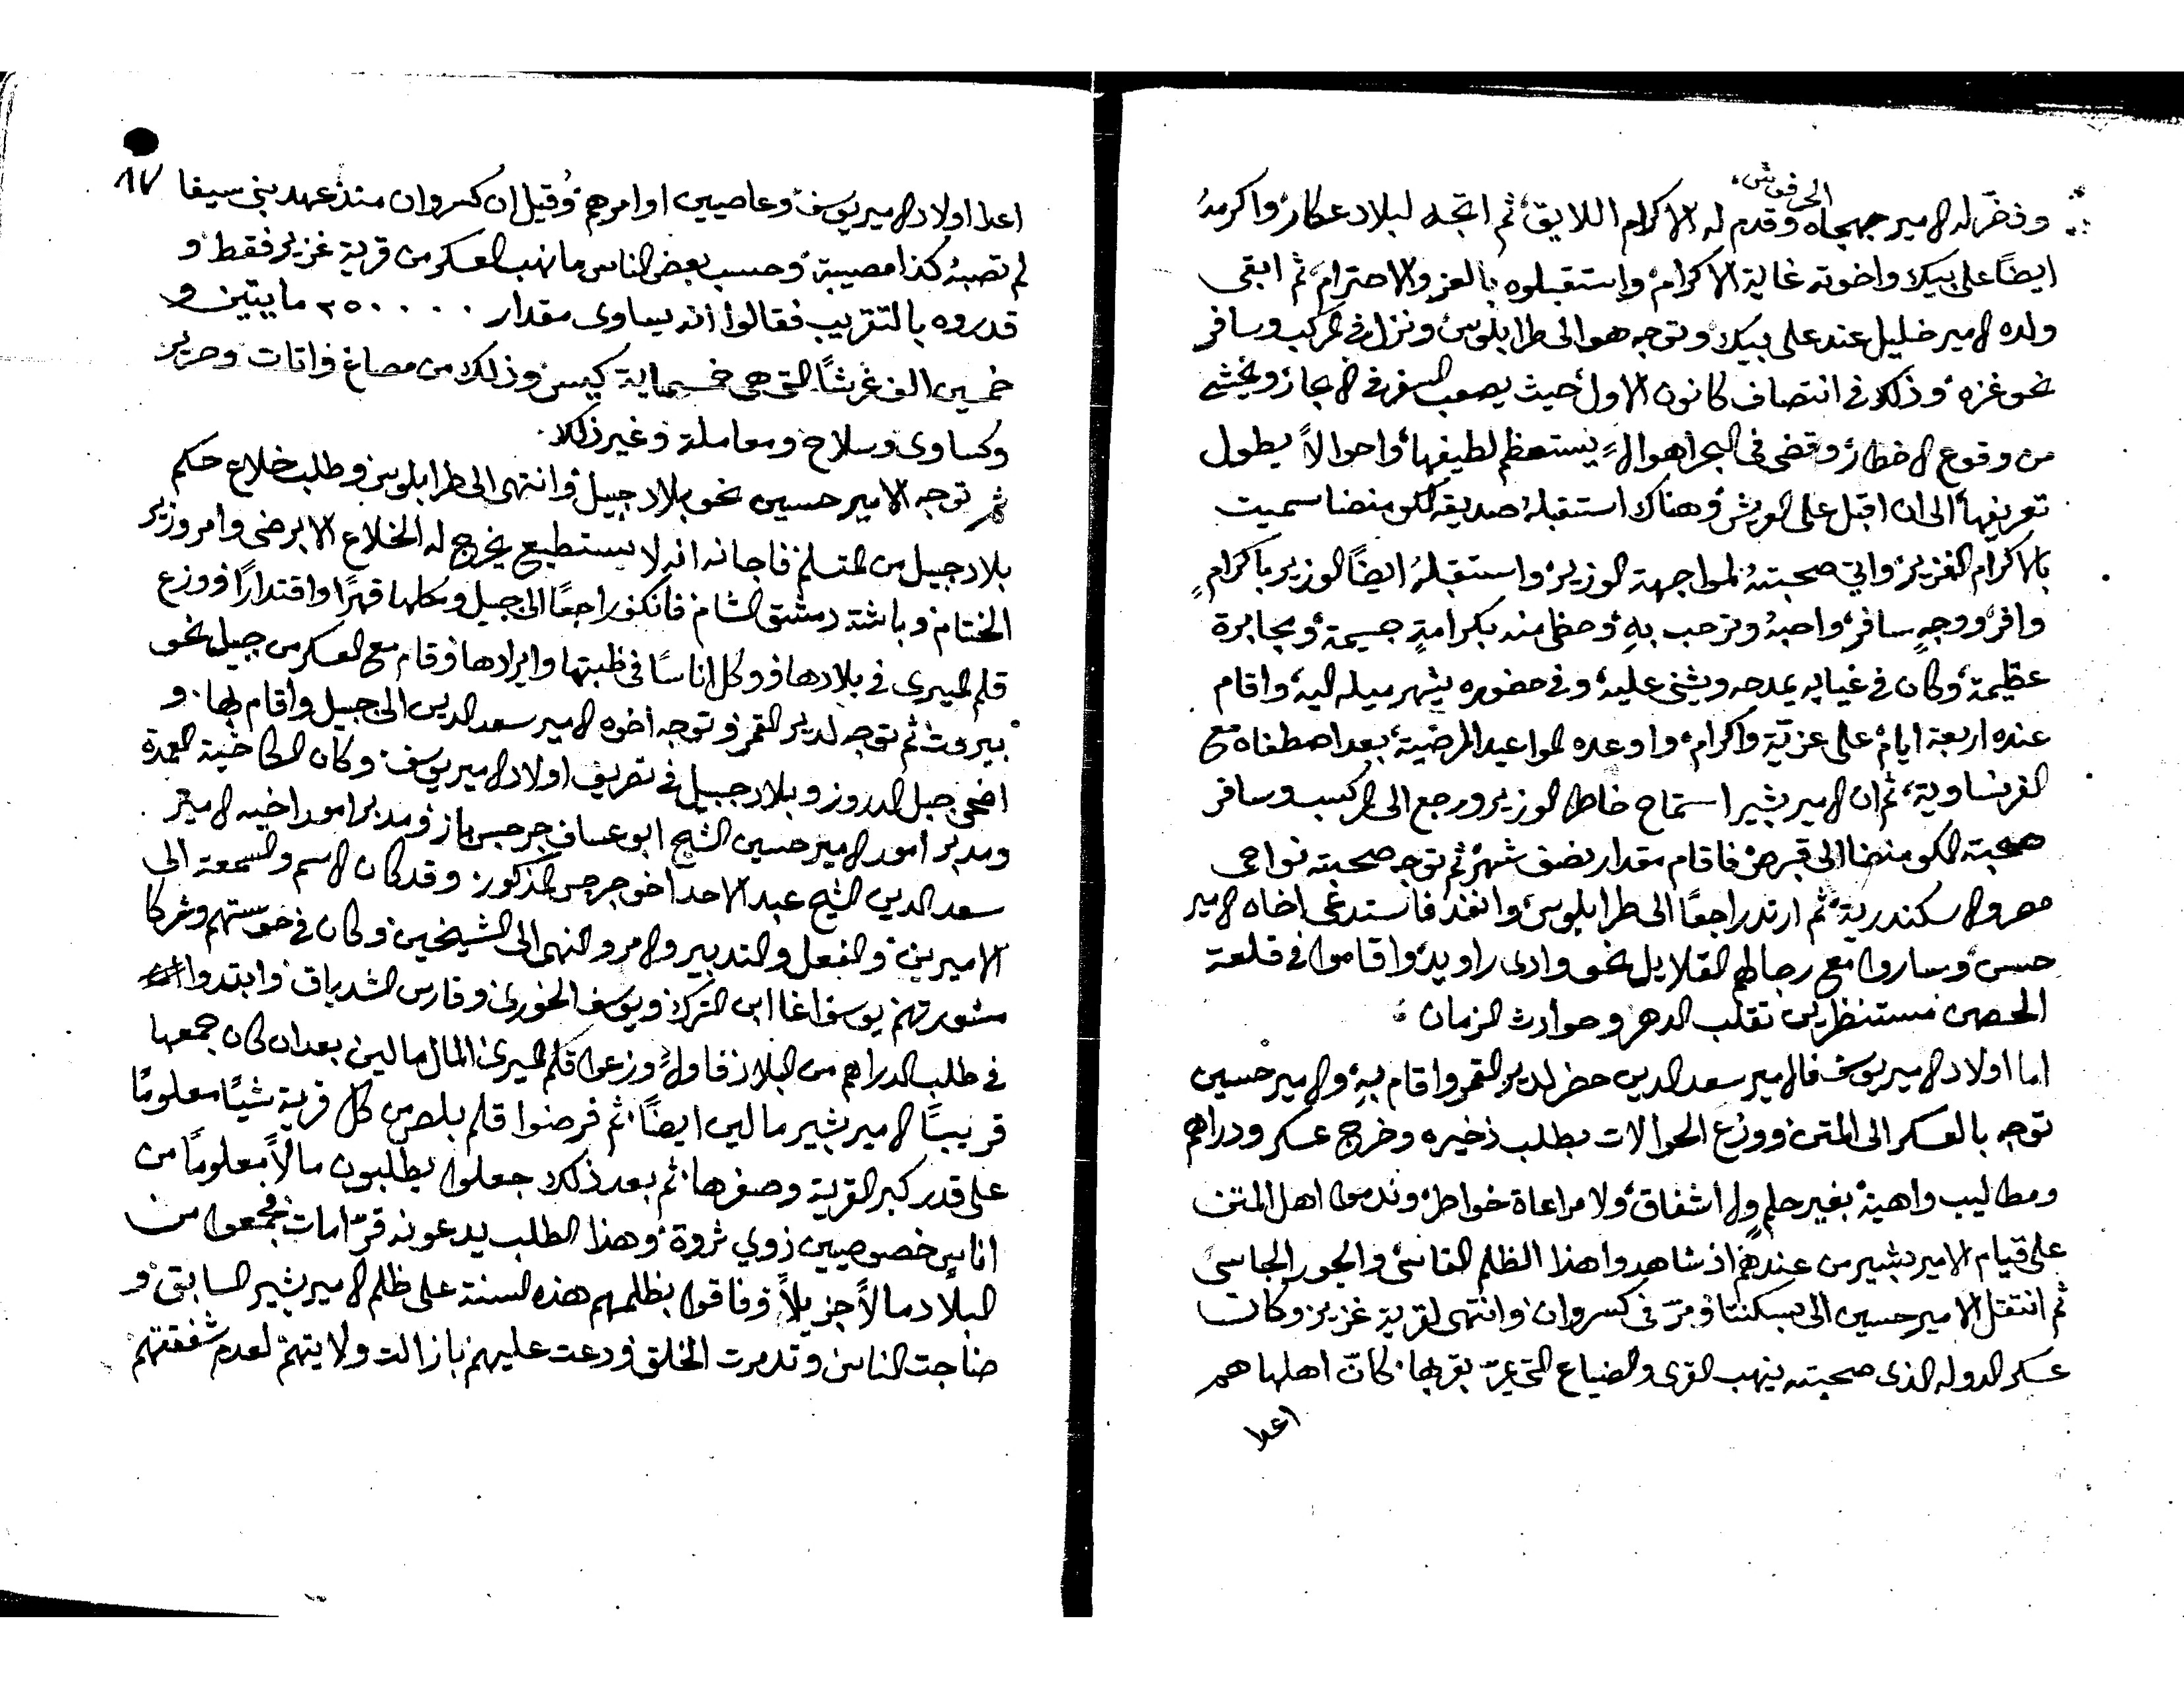 الحرفوش
وذخّر له الامير جهجاه وقدم له الاكرام اللايق ثم اتجه لبلاد عكار واكرمهُ
ايضاً على بيك واخوته غاية الاكرام واستقبلوه بالعز والاحترام ثم ابقى
ولده الامير خليل عند على بيك وتوجه هو الى طرابلوس ونزل في المركب وسافر
نحو غزه وذلك في انتصاف كانون الاول حيث يصعب السفر في الابحار ويخشى
من وقوع الاخطار وقضى في البحر اهوالاً يستعظم لطيفها واحوالاً يطول
تعريفها الى ان اقبل على العريش وهناك استقبلهُ صديقه الكومنضا سميت
بالاكرام الغزير واتي صحبتهُ لمواجهة الوزير واستقبلهُ ايضاً الوزير باكرامٍ
وافر ووجهٍ سافر واحبهُ وترحب بهِ وحظى منه بكرامةٍ جسيمة ومجابرة
عظيمة وكان في غيابه يمدحه ويثني عليه وفي حضوره يشهر ميله اليه واقام
عنده اربعة ايام على عزيّة واكرام واوعده المواعيد المرضية بعد اصطفاه مع
الفرنساوية ثم ان الامير بشير استماح خاطر الوزير ورجع الى المركب وسافر
صحبته الكومنضا الى قبرص فاقام مقدار نصف شهر ثم توجه صحبته نواحى
مصر والاسكندرية ثم ارتد راجعًا الى طرابلوس وانفذ فاستدعى اخاه الامير
حسن وساروا مع رجالهم القلايل نحو وادى راويد واقاموا في قلعة
الحصن مستنظرين تقلب الدهر وحوادث الزمان
اما اولاد الامير يوسف فالامير سعد الدين حضر لدير القمر واقام بهِ والامير حسين
توجه بالعسكر الى المتن ووزع الحوالات بطلب ذخيره وخرج عسكر ودراهم
ومطاليب واهية بغير حلم ولا اشفاق ولا مراعاة خواطر وندموا اهل المتن
على قيام الامير بشير من عندهم اذ شاهدوا هذا الظلم القاسى والجور الجاسى
ثم انتقل الامير حسين الى بسكنتا ومرّ في كسروان وانتهى لقرية غزير وكان
عسكر الدوله الذى صحبته ينهب القرى والضياع التى يمرّ بقربها كانّ اهلها هم
اعدا
١٧
اعدا اولاد الامير يوسف وعاصيين اوامرهم وقيل ان كسروان منذ عهد بني سيفا
لم تصبهُ كذا مصيبة وحسب بعض الناس ما نهب العسكر من قرية غزير فقط و
قدروه بالتقريب فقالوا انه يساوى مقدار ٢٥٠٠٠٠ مايتين و
خمسين الف غرشاً التى هى خمسماية كيس وذلك من مصاغ واثاث وحرير
وكساوى وسلاح ومعاملة وغير ذلك
ثم توجه الامير حسين نحو بلاد جبيل وانتهى الى طرابلوس وطلب خلاع حكم
بلاد جبيل من المتسلم فاجابه انه لا يستطيع يخرج له الخلاع الا برضى وامر وزير
الختام وباشة دمشق الشام فانكف راجعًا الى جبيل وحكمها قهرًا واقتدارًا ووزع
قلم الميرى في بلادها ووكل اناسًا في ظبتها وايرادها وقام مع العسكر من جبيل نحو
بيروت ثم توجه لدير القمر وتوجه اخوه الامير سعد الدين الى جبيل واقام بها و
اضحى جبل الدروز وبلاد جبيل في تصريف اولاد الامير يوسف وكان الكاخية العمدة
ومدبر امور الامير حسين الشيخ ابو عساف جرجس باز ومدبر امور اخيه الامير
سعد الدين الشيخ عبد الاحد اخو جرجس المذكور وقد كان الاسم والسمعة الى
الاميرين والفعل والتدبير والامر والنهى الى الشيخين وكان في حوستهم وشركا
مشورتهم يوسف اغا ابن الترك ويوسف الخورى وفارس الشدياق وابتدوا
في طلب الدراهم من البلاد فاولاً وزعوا قلم الميرى المال مالين بعد ان كان جمعها
قريبًا الامير بشير مالين ايضاً ثم فرضوا قلم بلص من كل قرية شيًا معلومًا
على قدر كبر القرية وصغرها ثم بعد ذلك جعلوا يطلبون مالاً معلومًا من
اناس خصوصيين ذوي ثروة وهذا الطلب يدعونه قرّامات فجمعوا من
البلاد مالاً جزيلاً وفاقوا بظلمهم هذه السنة على ظلم الامير بشير السابق و
ضاجت الناس وتدمرت الخلق ودعت عليهم بازالت ولايتهم لعدم شفقتهم